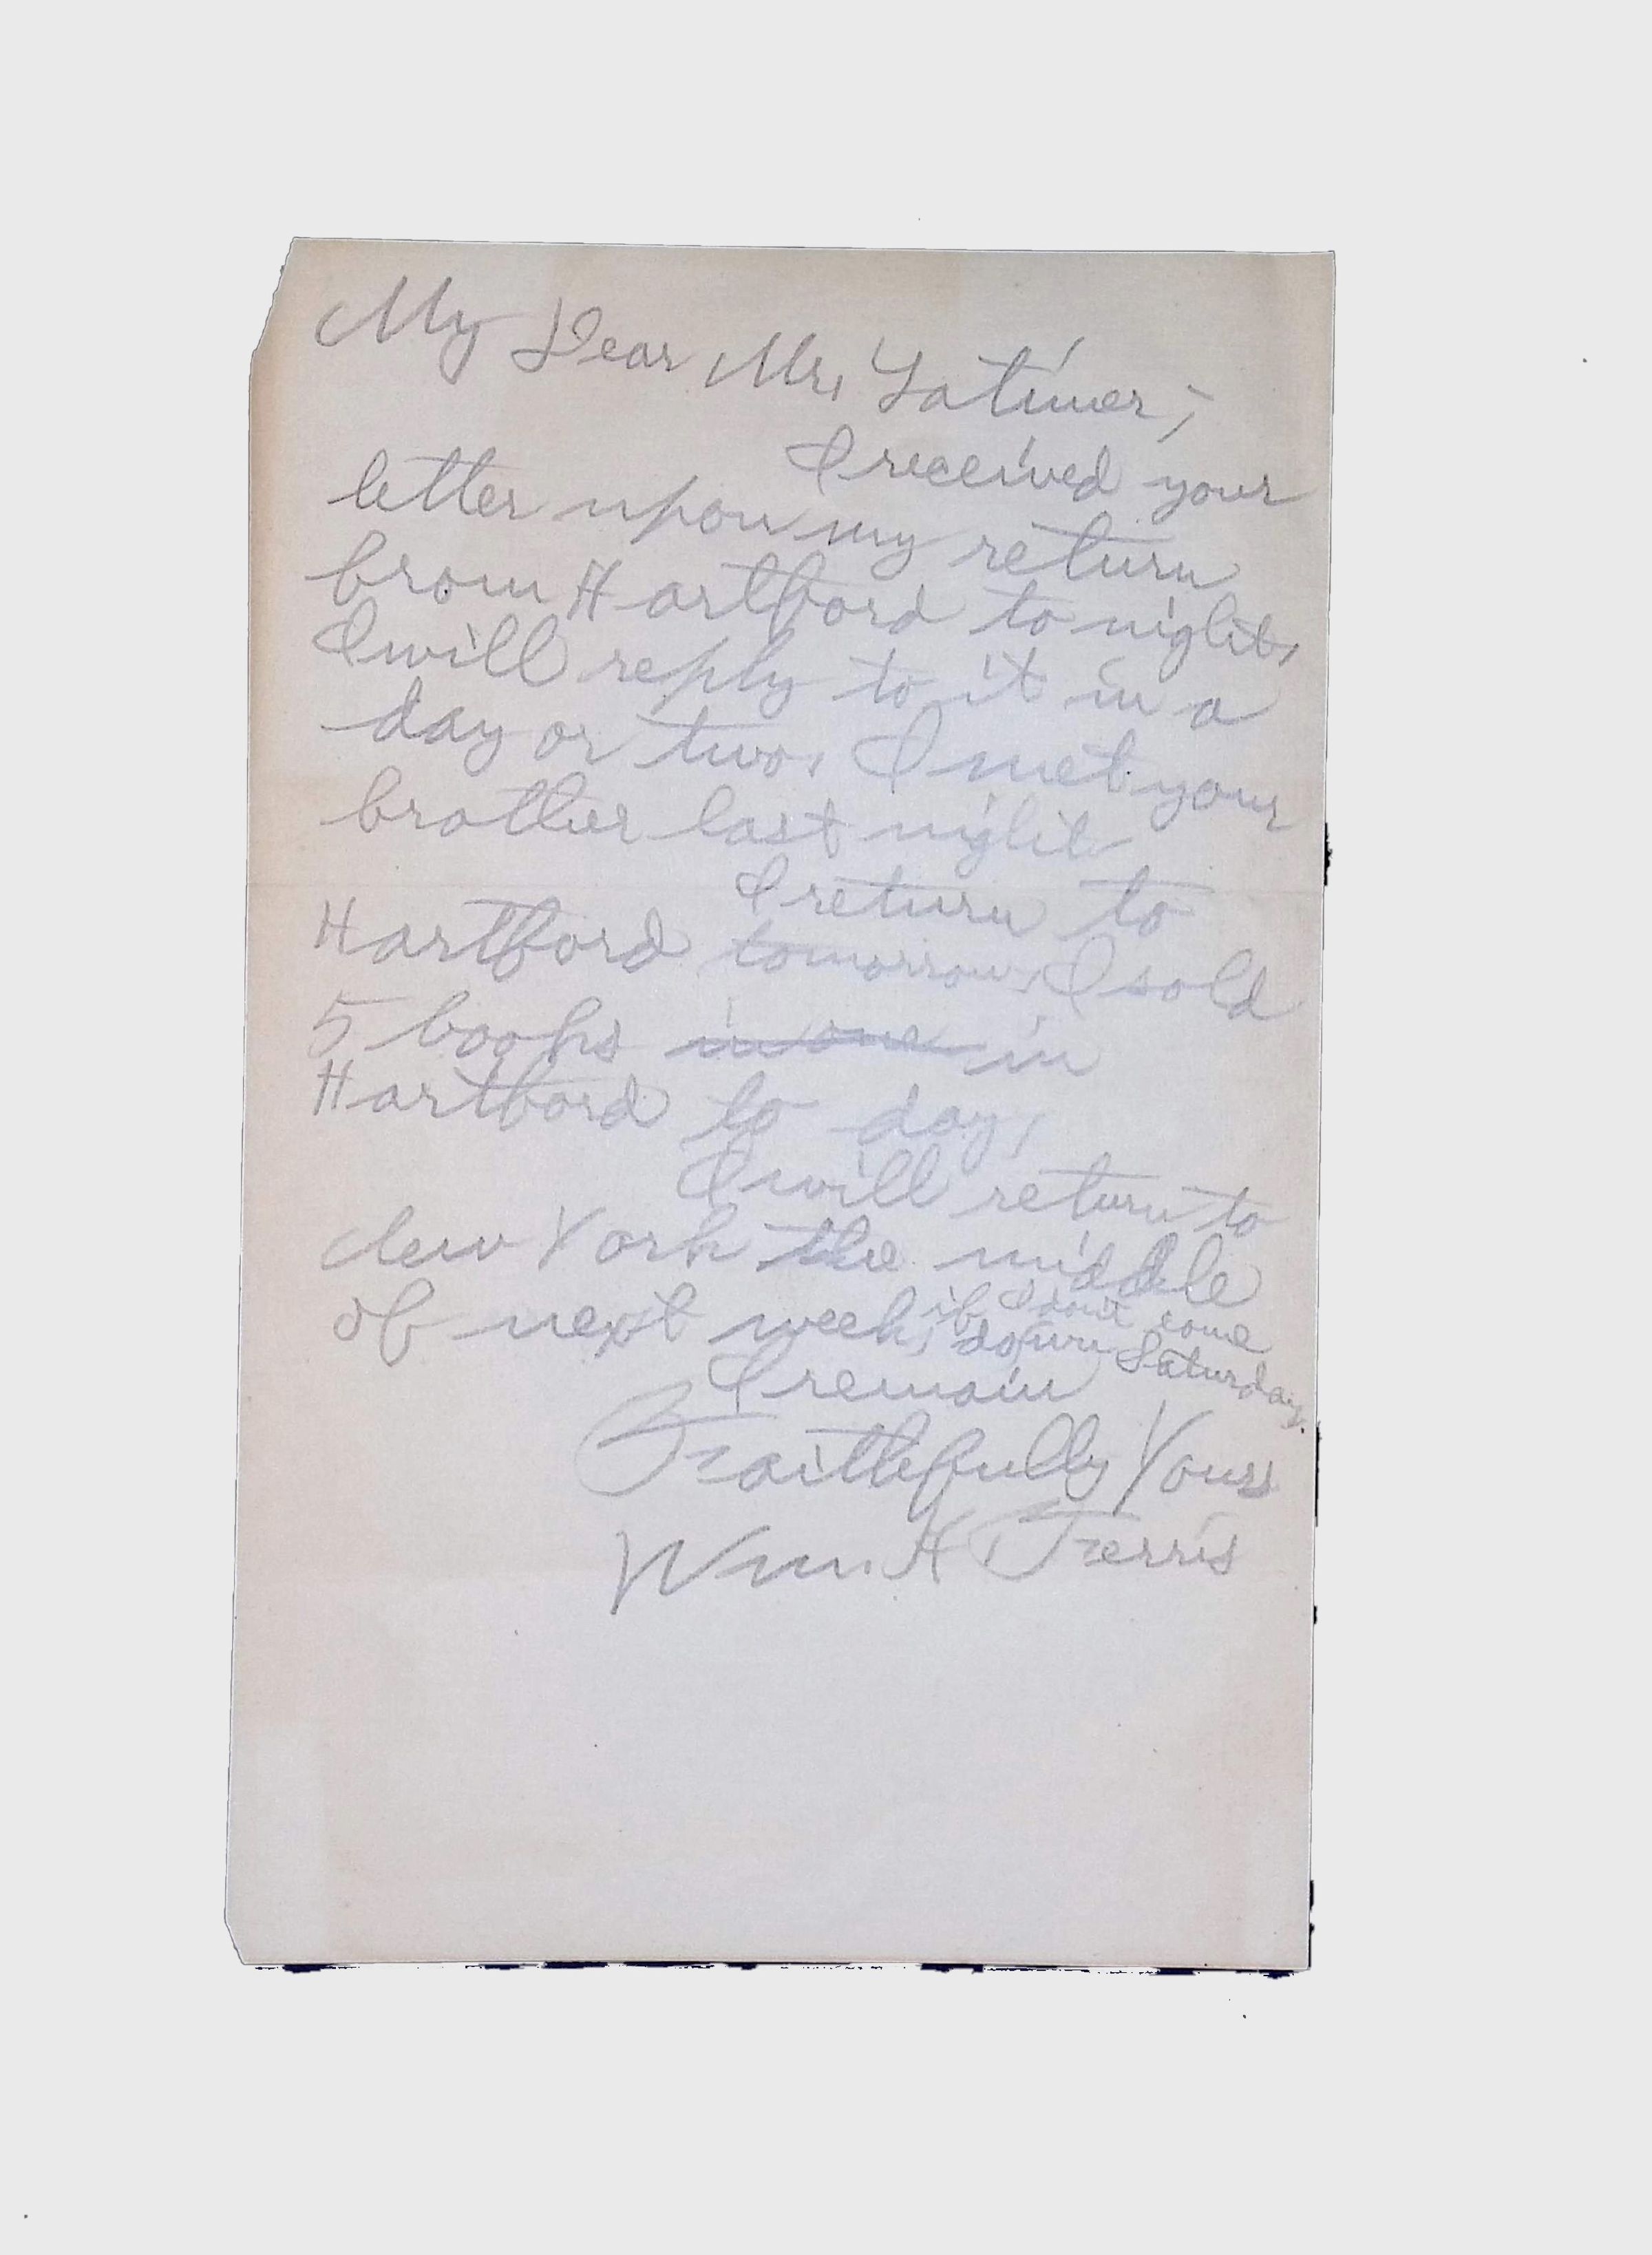 My Dear Mr. Latimer;
I received your
letter upon my return
from Hartford to night.
I will reply to it in a
day or two. I met your
brother last night
I return to
Hartford tomorrow. I sold
5 books in one in
Hartford to day.
I will return to
New York the middle
of next week, if I don't come
down Saturday.
I remain
Faithfully Yours
Wm. H. Ferris